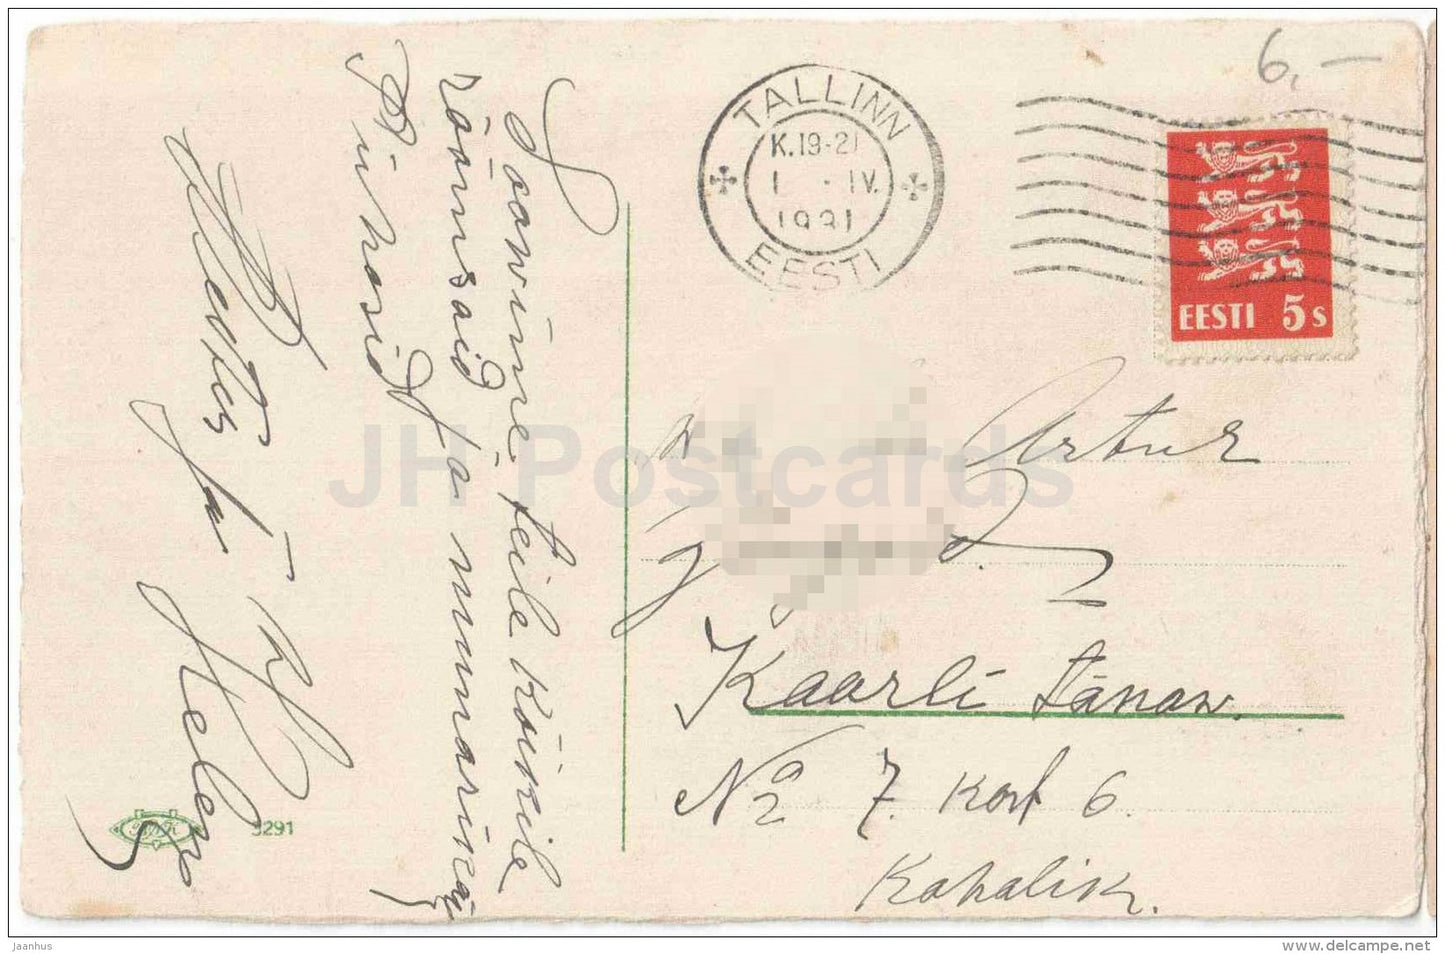 6,-
TALLINN
K.19-21
1 . IV.
1931
EESTI
EESTI 5 s
Soowime teile kõikile
rõõmsaid ja munarikaid
Pühasid
ja Helene
Artur
Kaarli tänaw.
№ 7. kort 6.
Kohalik.
3291
JH Postcards
Jaanhus
www.delcampe.net